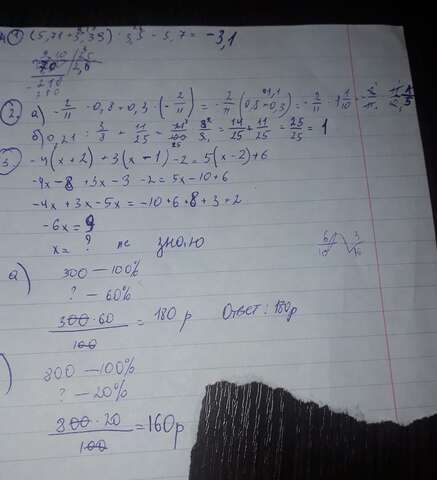 (5,71 + 3,39) : 3,5 - 5,7 = -3,1
2. а) -2/11 · 0,8 + 0,3 · (-2/11) = -2/11 (0,8 + 0,3) = -2/11 · 1 1/10 =
б) 0,21 : 3/8 + 11/25 = 21/100 · 8/3 = 14/25 + 11/25 = 25/25 = 1
3. -4(x+2) + 3(x-1) - 2 = 5(x-2) + 6
-4x - 8 + 3x - 3 - 2 = 5x - 10 + 6
-4x + 3x - 5x = -10 + 6 + 8 + 3 + 2
-6x = 9
x = ? не знаю
а) 300 — 100%
? — 60%
300 · 60 / 100 = 180 р Ответ: 180р
) 800 — 100%
? — 20%
800 · 20 / 100 = 160р